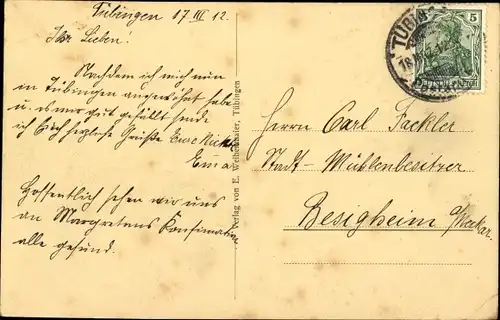 Tübingen 17 III 12.
Ihr Lieben!
Nachdem ich mich nun
in Tübingen eingewöhnt habe
u. es mir gut gefällt sende
ich Euch herzliche Grüße Eure Nichte
Emma
Hoffentlich sehen wir uns
an Margretens Konfirmation
alle gesund.
Verlag von E. Weilhammer, Tübingen
TÜBIN
18
5
Herrn Carl Fackler
Stadt-Mühlenbesitzer
Besigheim a/Neckar.